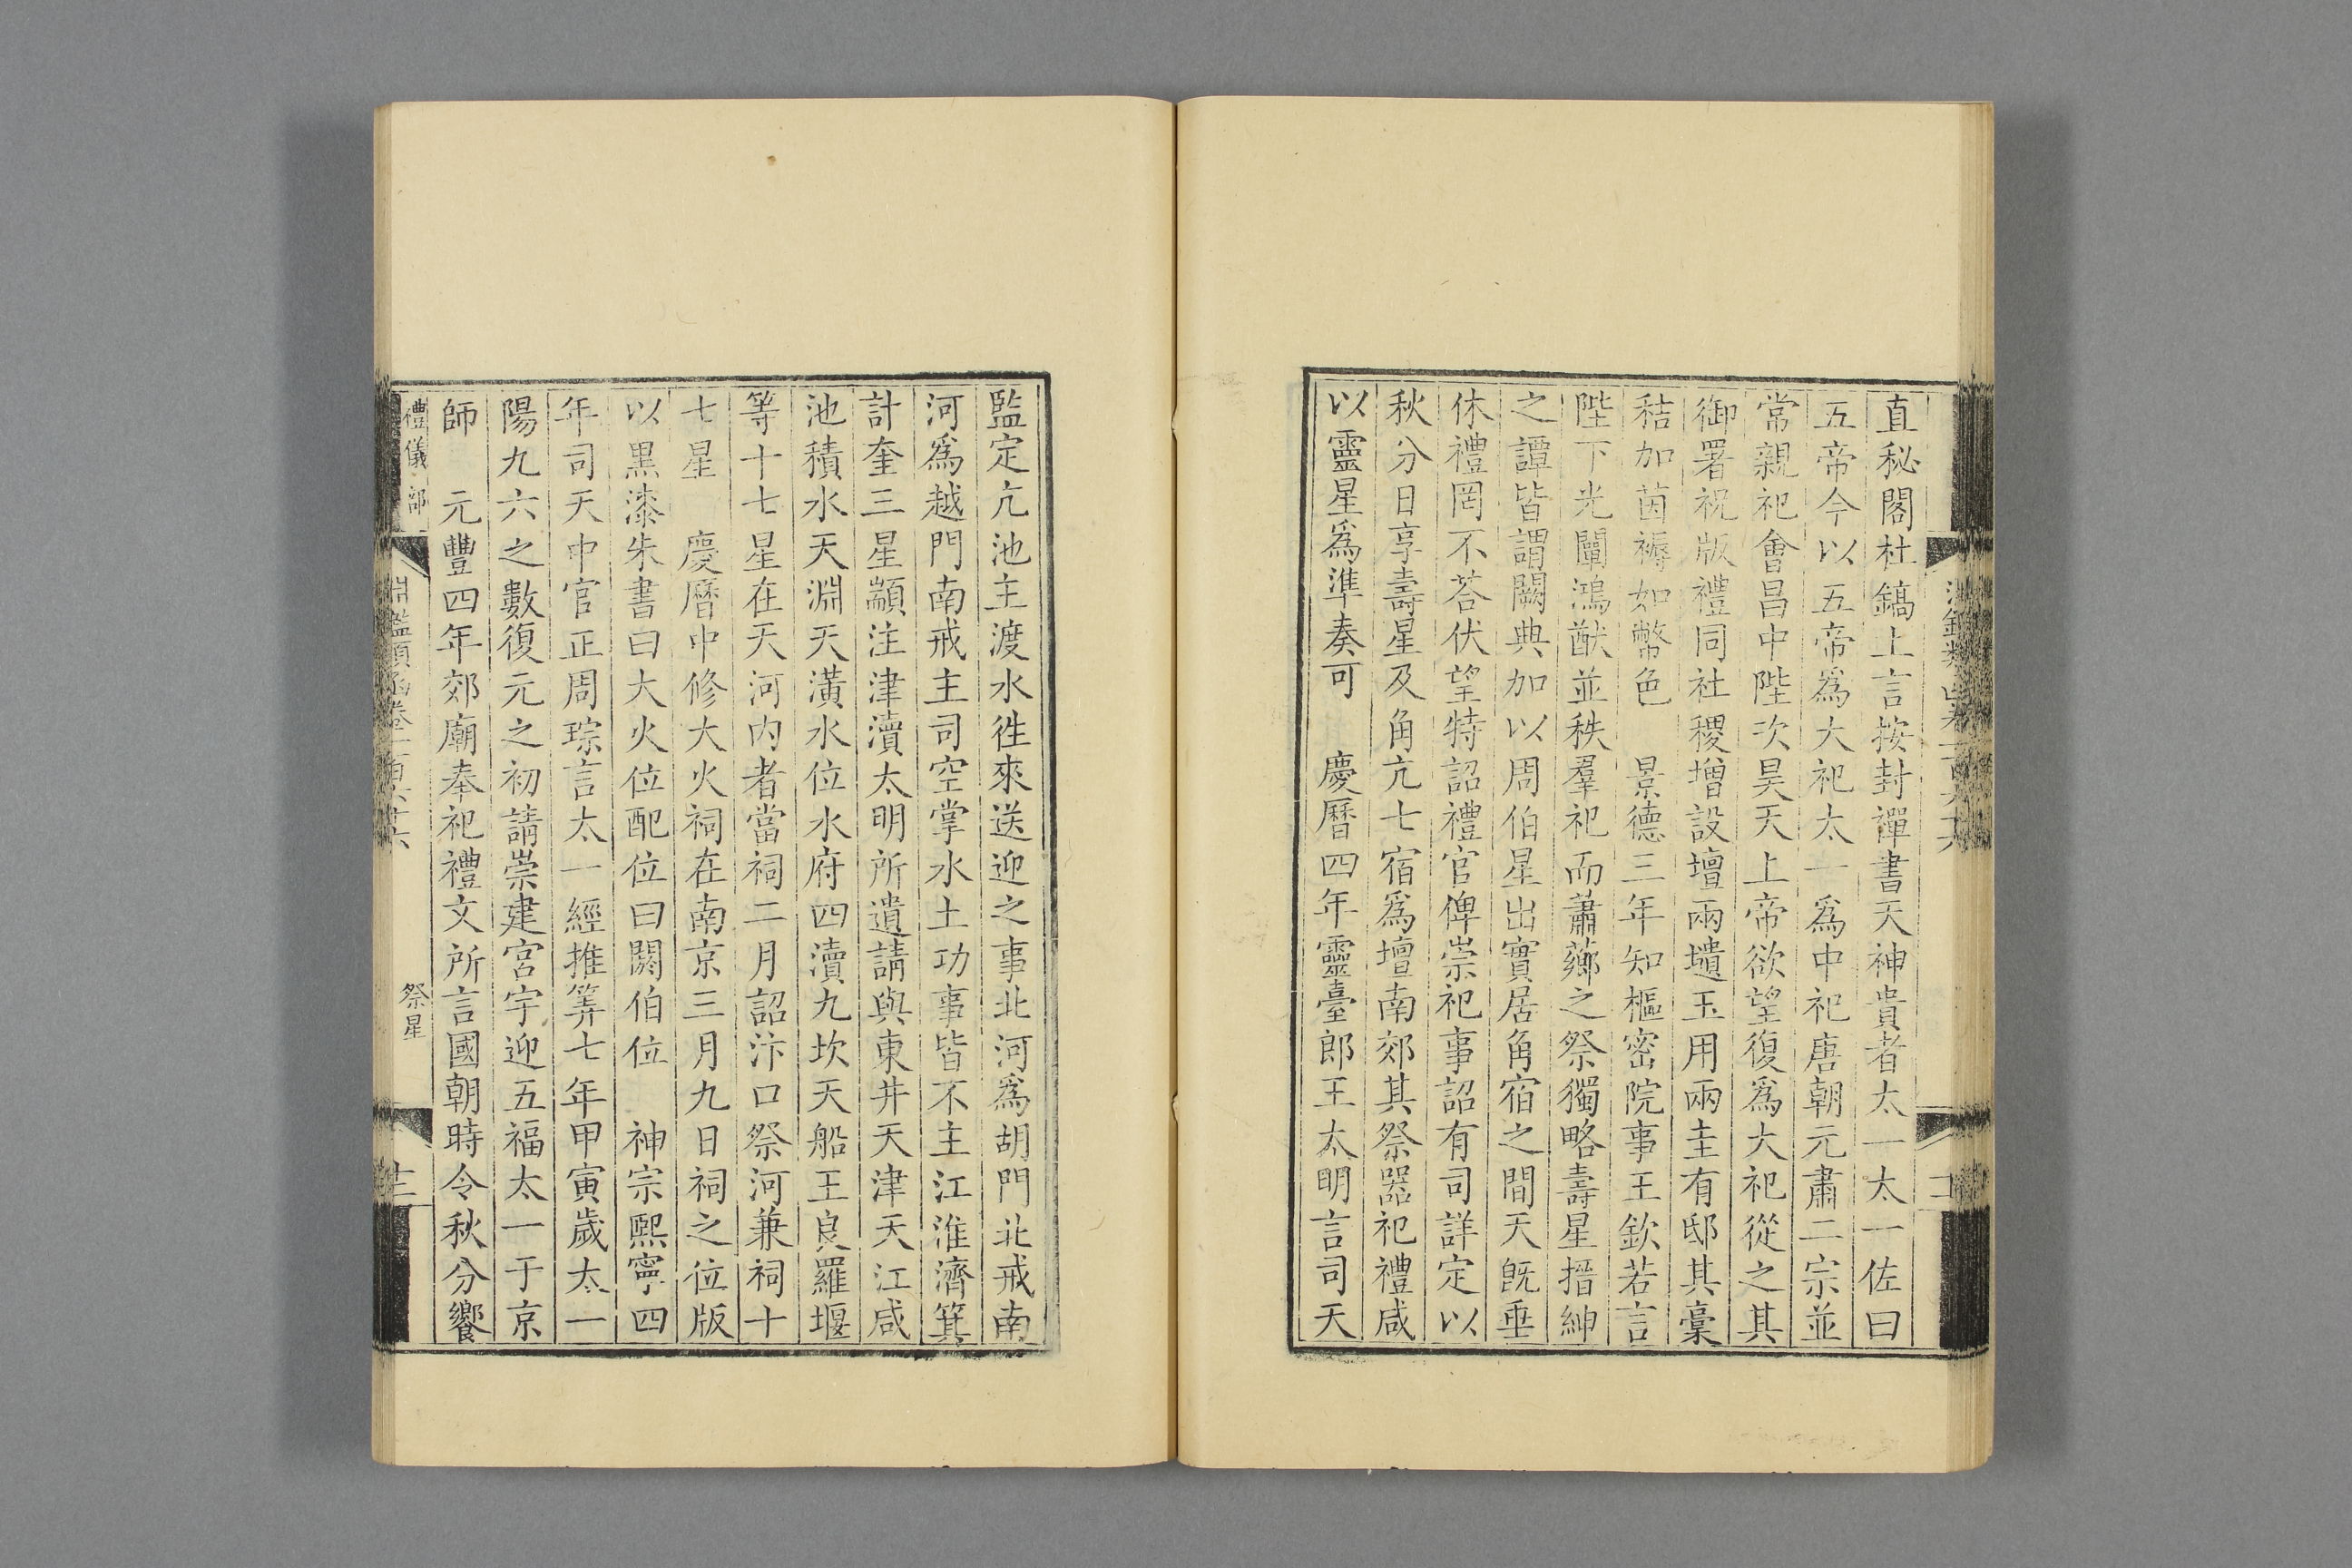 直秘閣杜鎬上言按封禪書天神貴者太一太一佐曰
五帝今以五帝爲大祀太一爲中祀唐朝元肅二宗並
常親祀會昌中陛次昊天上帝欲望復爲大祀從之其
御署祝版禮同社稷增設壇兩壝玉用兩圭有邸其稾
秸加茵褥如幣色　景德三年知樞密院事王欽若言
陛下光闡鴻猷並秩羣祀而蕭薌之祭獨略壽星搢紳
之譚皆謂闕典加以周伯星出實居角宿之間天旣垂
休禮罔不荅伏望特詔禮官俾崇祀事詔有司詳定以
秋分日享壽星及角亢七宿爲壇南郊其祭器祀禮咸
以靈星爲準奏可　慶曆四年靈臺郎王太明言司天
監定亢池主渡水徃來送迎之事北河爲胡門北戒南
河爲越門南戒主司空掌水土功事皆不主江淮濟箕
計奎三星顓注津瀆太明所遺請與東井天津天江咸
池積水天淵天潢水位水府四瀆九坎天船王良羅堰
等十七星在天河内者當祠二月詔汴口祭河兼祠十
七星　慶曆中修大火祠在南京三月九日祠之位版
以黒漆朱書曰大火位配位曰閼伯位　神宗熙寧四
年司天中官正周琮言太一經推筭七年甲寅歲太一
陽九六之數復元之初請崇建宮宇迎五福太一于京
師　元豐四年郊廟奉祀禮文所言國朝時令秋分饗
禮儀部
淵鑑類函卷一百六十六
祭星